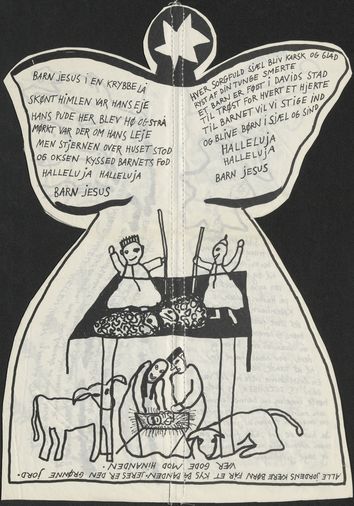 BARN JESUS I EN KRYBBE LÅ
SKØNT HIMLEN VAR HANS EJE
HANS PUDE HER BLEV HØ OG STRÅ
MØRKT VAR DER OM HANS LEJE
MEN STJERNEN OVER HUSET STOD
OG OKSEN KYSSED BARNETS FOD
HALLELUJA HALLELUJA
BARN JESUS
HVER SORGFULD SJÆL BLIV KARSK OG GLAD
RYST AF DIN TUNGE SMERTE
ET BARN ER FØDT I DAVIDS STAD
TIL TRØST FOR HVERT ET HJERTE
TIL BARNET VIL VI STIGE IND
OG BLIVE BØRN I SJÆL OG SIND
HALLELUJA
HALLELUJA
BARN JESUS
ALLE JORDENS KÆRE BØRN FÅR ET KYS PÅ PANDEN. JERES ER DEN GRØNNE JORD.
VÆR GODE MOD HINANDEN.